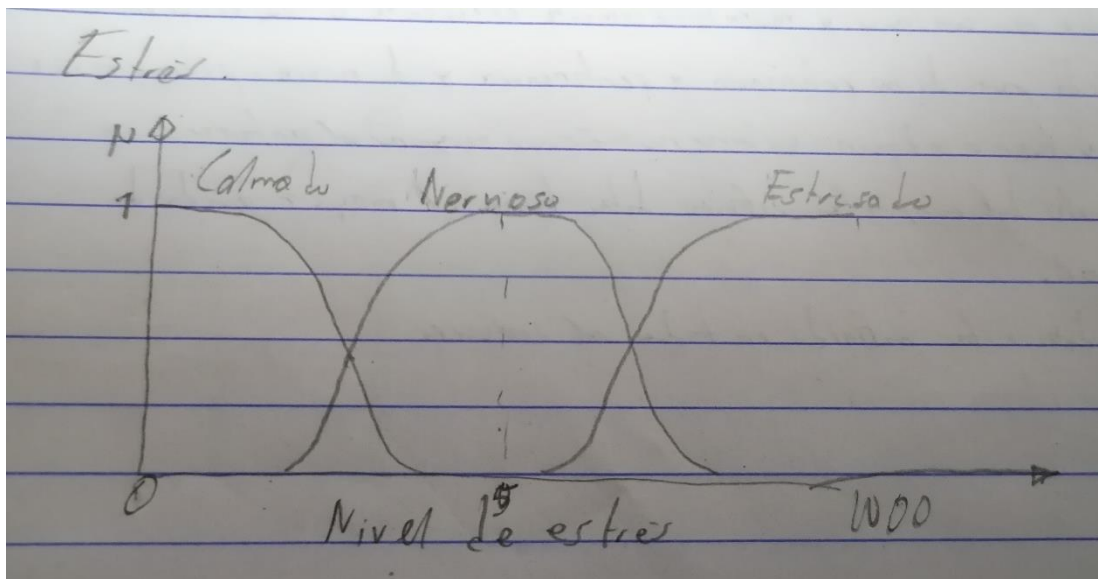 Estrés.
μ
Calmado Nervoso Estresado
1
0 5 1000
Nivel de estrés